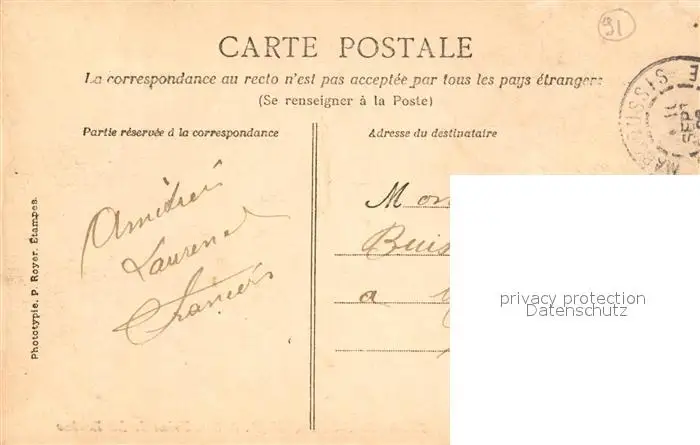 91
CARTE POSTALE
La correspondance au recto n'est pas acceptée par tous les pays étrangers
(Se renseigner à la Poste)
MARCOUSSIS
11
SEPT
Partie réservée à la correspondance
Adresse du destinataire
Laurence
Francis
Mon
Buis
a
privacy protection
Datenschutz
Phototypie. P. Royer, Étampes.